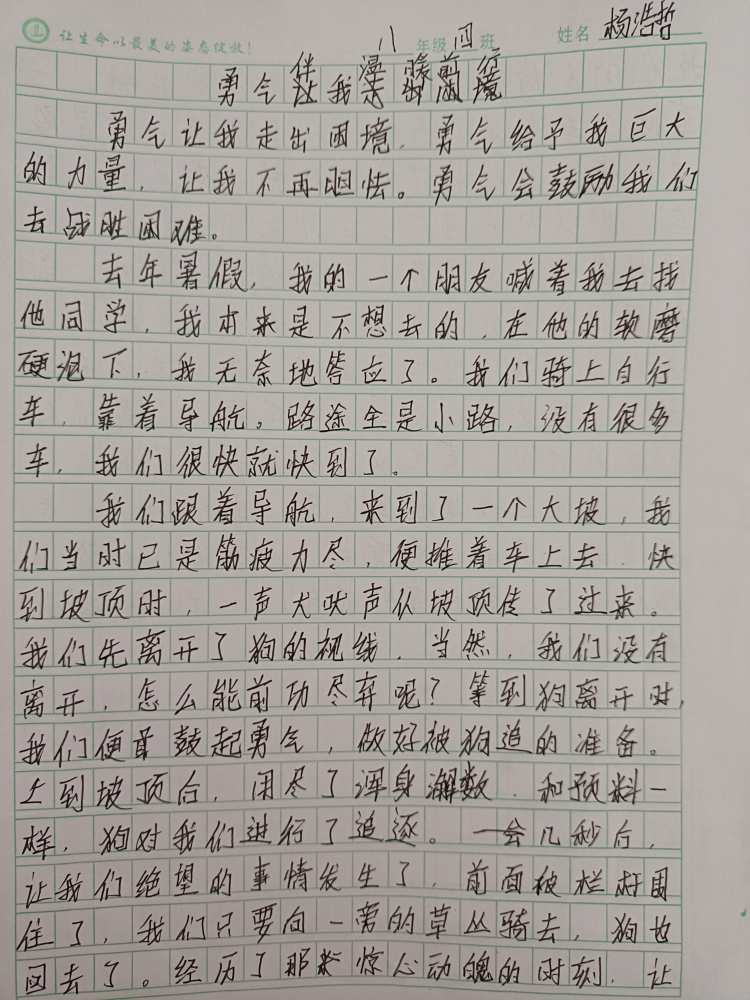 让生命以最美的姿态绽放！ 八年级四班 姓名 杨浩哲
伴 漫 前行
勇气让我走出困境
勇气让我走出困境，勇气给予我巨大
的力量，让我不再胆怯。勇气会鼓励我们
去战胜困难。
去年暑假，我的一个朋友喊着我去找
他同学，我本来是不想去的，在他的软磨
硬泡下，我无奈地答应了。我们骑上自行
车，靠着导航。路途全是小路，没有很多
车，我们很快就快到了。
我们跟着导航，来到了一个大坡，我
们当时已是筋疲力尽，便推着车上去，快
到坡顶时，一声犬吠声从坡顶传了过来。
我们先离开了狗的视线，当然，我们没有
离开，怎么能前功尽弃呢？等到狗离开时，
我们便鼓起勇气，做好被狗追的准备。
上到坡顶后，用尽了浑身澥数，和预料一
样，狗对我们进行了追逐。一会几秒后，
让我们绝望的事情发生了，前面被栏杆围
住了，我们只要向一旁的草丛骑去，狗也
回去了。经历了那惊心动魄的时刻，让